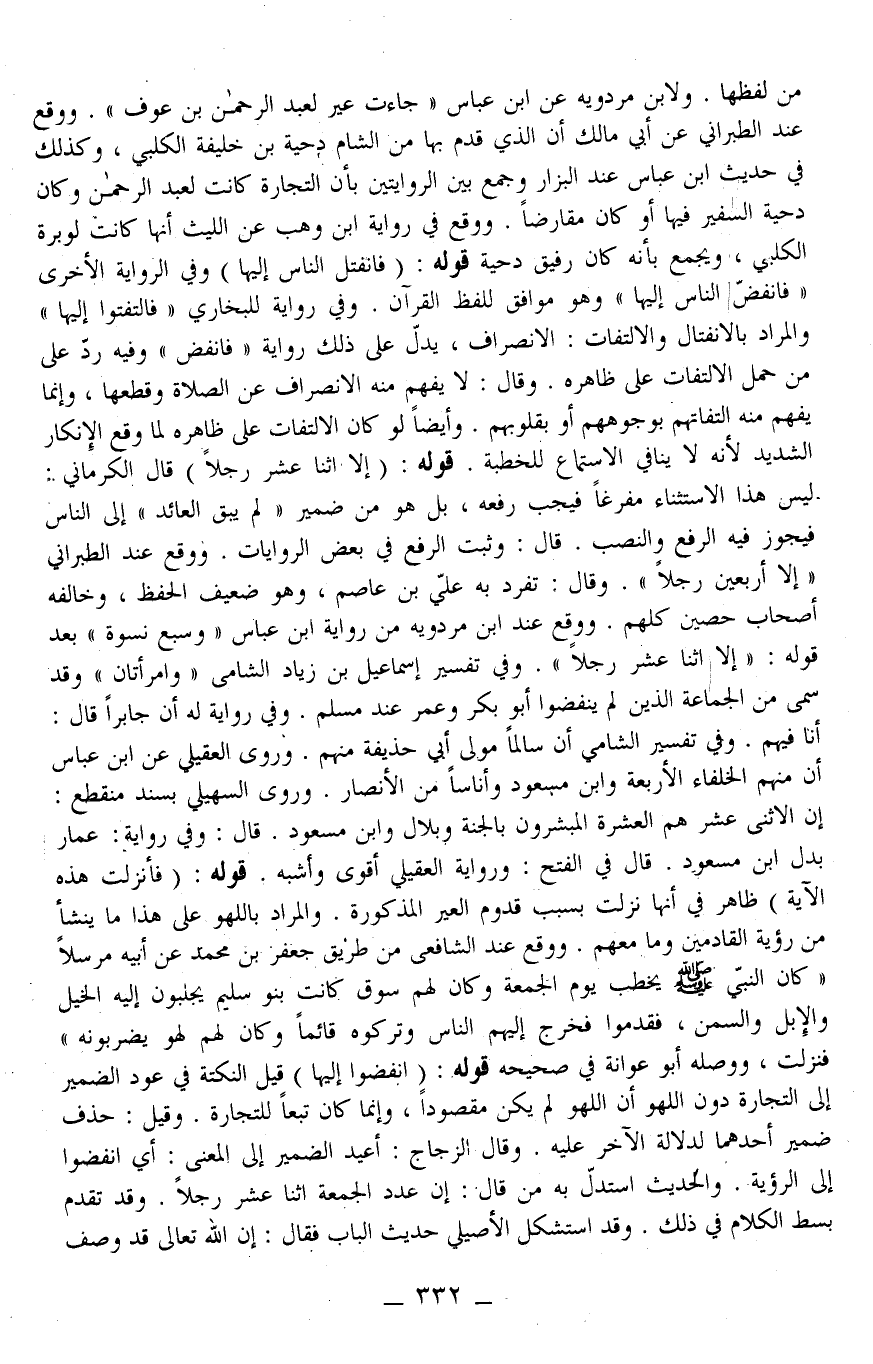 من لفظها . ولابن مردويه عن ابن عباس « جاءت عير لعبد الرحمٰن بن عوف » . ووقع
عند الطبراني عن أبي مالك أن الذي قدم بها من الشام دحية بن خليفة الكلبي ، وكذلك
في حديث ابن عباس عند البزار وجمع بين الروايتين بأن التجارة كانت لعبد الرحمٰن وكان
دحية السفير فيها أو كان مقارضاً . ووقع في رواية ابن وهب عن الليث أنها كانت لوبرة
الكلبي ، ويجمع بأنه كان رفيق دحية قوله : ( فانفتل الناس إليها ) وفي الرواية الأخرى
« فانفضّ الناس إليها » وهو موافق للفظ القرآن . وفي رواية للبخاري « فالتفتوا إليها »
والمراد بالانفتال والالتفات : الانصراف ، يدلّ على ذلك رواية « فانفض » وفيه ردّ على
من حمل الالتفات على ظاهره . وقال : لا يفهم منه الانصراف عن الصلاة وقطعها ، وإنما
يفهم منه التفاتهم بوجوههم أو بقلوبهم . وأيضاً لو كان الالتفات على ظاهره لما وقع الإنكار
الشديد لأنه لا ينافي الاستماع للخطبة . قوله : ( إلا اثنا عشر رجلاً ) قال الكرماني :
ليس هذا الاستثناء مفرغاً فيجب رفعه ، بل هو من ضمير « لم يبق العائد » إلى الناس
فيجوز فيه الرفع والنصب . قال : وثبت الرفع في بعض الروايات . ووقع عند الطبراني
« إلا أربعين رجلاً » . وقال : تفرد به عليّ بن عاصم ، وهو ضعيف الحفظ ، وخالفه
أصحاب حصين كلهم . ووقع عند ابن مردويه من رواية ابن عباس « وسبع نسوة » بعد
قوله : « إلا اثنا عشر رجلاً » . وفي تفسير إسماعيل بن زياد الشامى « وامرأتان » وقد
سمى من الجماعة الذين لم ينفضوا أبو بكر وعمر عند مسلم . وفي رواية له أن جابراً قال :
أنا فيهم . وفي تفسير الشامي أن سالماً مولى أبي حذيفة منهم . وروى العقيلي عن ابن عباس
أن منهم الخلفاء الأربعة وابن مسعود وأناساً من الأنصار . وروى السهيلي بسند منقطع :
إن الاثنى عشر هم العشرة المبشرون بالجنة وبلال وابن مسعود . قال : وفي رواية : عمار
بدل ابن مسعود . قال في الفتح : ورواية العقيلي أقوى وأشبه . قوله : ( فأنزلت هذه
الآية ) ظاهر في أنها نزلت بسبب قدوم العير المذكورة . والمراد باللهو على هذا ما ينشأ
من رؤية القادمين وما معهم . ووقع عند الشافعى من طريق جعفر بن محمد عن أبيه مرسلاً
« كان النبيّ ﷺ يخطب يوم الجمعة وكان لهم سوق كانت بنو سليم يجلبون إليه الخيل
والإبل والسمن ، فقدموا فخرج إليهم الناس وتركوه قائماً وكان لهم لهو يضربونه »
فنزلت ، ووصله أبو عوانة في صحيحه قوله : ( انفضوا إليها ) قيل النكتة في عود الضمير
إلى التجارة دون اللهو أن اللهو لم يكن مقصوداً ، وإنما كان تبعاً للتجارة . وقيل : حذف
ضمير أحدهما لدلالة الآخر عليه . وقال الزجاج : أعيد الضمير إلى المعنى : أي انفضوا
إلى الرؤية . والحديث استدلّ به من قال : إن عدد الجمعة اثنا عشر رجلاً . وقد تقدم
بسط الكلام في ذلك . وقد استشكل الأصيلي حديث الباب فقال : إن الله تعالى قد وصف
_ ٣٣٢ _